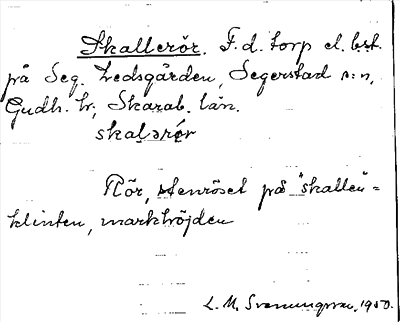 Skallerör. F.d. torp el. bst.
på Seg. Ledsgården, Segerstad s:n,
Gudh. hr, Skarab. län.
skaḷərǿr
Rör, stenröset på "skallen" =
klinten, markhöjden
L. M. Svenungsson, 1950.